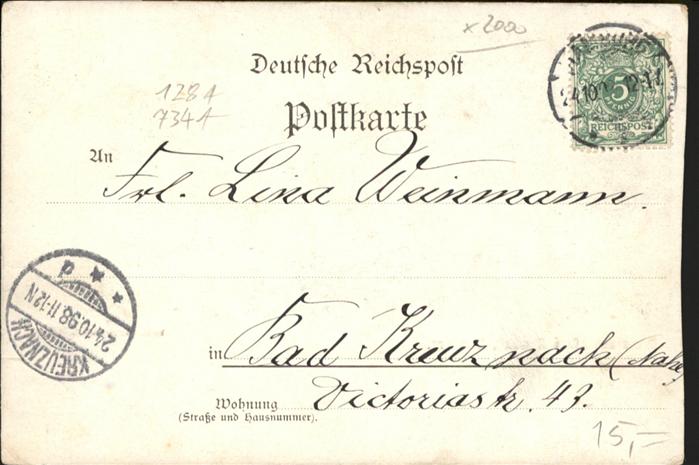 x 2000
Deutsche Reichspost
Postkarte
128 A
734 A
5
PFENNIG
REICHSPOST
24.10. 12-1
An
Frl. Lina Weinmann.
KREUZNACH
24.10.98.11-12N
d
in Bad Kreuznach (Nahe)
Wohnung
(Straße und Hausnummer).
Victoriastr. 43.
15,-